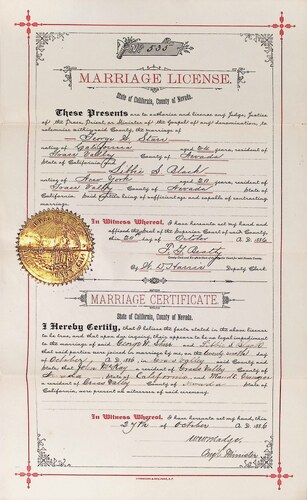 No 535
MARRIAGE LICENSE.
State of California, County of Nevada.
These Presents are to authorize and license any Judge, Justice
of the Peace, Priest, or Minister of the Gospel of any denomination, to
solemnize within said County, the marriage of
George W. Starr
native of California aged 24 years, resident of
Grass Valley County of Nevada
State of California, and
Libbie S. Clark
native of New York aged 20 years, resident of
Grass Valley County of Nevada State of
California. Said parties being of sufficient age and capable of contracting
marriage.
In Witness Whereof, I have hereunto set my hand and
affixed the Seal of the Superior Court of said County, this
20 day of October A.D. 1886
F. G. Beatty
By W. D. Harris Deputy Clerk
MARRIAGE CERTIFICATE.
State of California, County of Nevada.
I Hereby Certify, that I believe the facts stated in the above license
to be true, and that upon due inquiry, there appears to be no legal impediment
to the marriage of said George W. Starr and Libbie S. Clark
that said parties were joined in marriage by me, on the twenty seventh day
of October A.D. 1886 in Grass Valley said County
and State; that John McKay a resident of Grass Valley County
of Nevada State of California, and
a resident of Grass Valley County of Nevada State of
California, are present as witnesses of said ceremony.
In Witness Whereof, I have hereunto set my hand, this
27th of October A.D. 1886
Minister